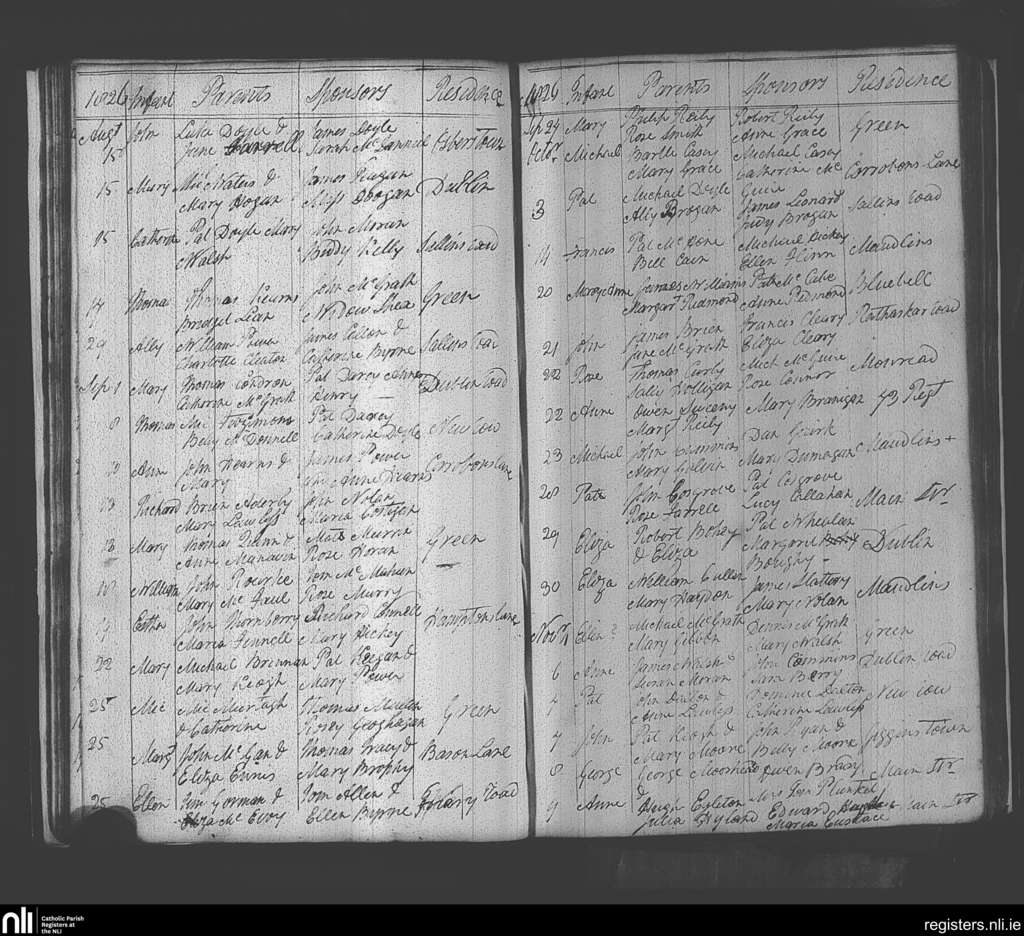 1826 Infant Parents Sponsors Residence
Augt John Luke Doyle & James Doyle
15 June Farrell Sarah McDanniel Osbertown
15 Mary Mic Waters & James Keegan
Mary Hogan Miss Doogan Dublin
15 Catherine Pat Doyle Mary John Moran
Walsh Biddy Kelly Sallins road
17 Thomas Thomas Kearns John McGrath
Bridget Lean Widow Shea Green
29 Ally William
Charlotte Catherine Byrne Sallins road
Sep 1 Mary Thomas Condron Pat Darcy
Catherine McGrath Henry Dublin road
8 Thomas Mic Fitzsimons Pat Darcey
Betty McDonnell Catherine Doyle New row
10 Ann John Kearns & James Power
Mary Anne Kearns Corrobonslane
13 Richard Brien Aderly John Nolan
Mary Lawless Maria Costigan
13 Mary Thomas Quinn & Mat Murrin
Anne Rose Horan Green
William John Rourke Tom McMahon
Mary McFaul Rose Murry
Esther John Thornberry Richard Fennell
Maria Fennell Mary Hickey Hamptonslane
22 Mary Michael Brennan Pat Keegan &
Mary Keogh Mary Power
25 Mic Mic Murtagh Thomas
& Catherine Rosey Geoghagan Green
25 Margt John McGan & Thomas Tracy &
Eliza Ennis Mary Brophy Baron Lane
25 Ellen Jim Gorman & Tom Allen &
Eliza McEvoy Ellen Byrne Kilary road
1826 Infant Parents Sponsors Residence
Sep 24 Mary Philip Reily Robert Reily
Rose Smith Anne Grace Green
Octr Michael Bartle Casey Michael Casey
Mary Grace Catherine Mc Corrobons Lane
3 Pat Michael Doyle Guire
Ally Brogan James Leonard Sallins road
Judy Brogan
14 Francis Pat McCone Michael Hickey
Bell Cain Ellen Flinn Maudlins
20 Maryanne James Williams Pat McCabe
Margart Redmond Anne Redmond Bluebell
21 John James Brien Francis Cleary Rathaskar road
Jane McGrath Eliza Cleary
22 Rose Thomas Curly Mich McGuire
Sally Holligan Rose Connor Monread
22 Anne Owen Sweeny Mary Branigan 73 Regt
Margt Reily
23 Michael John Cummins Dan
Mary Mary Dunnagan Maudlins +
28 Patt John Cosgrove Pat Cosgrove
Rose Farrell Lucy Callahan Main Str
29 Eliza Robert Bobey Pat Whealan
& Eliza Margaret Dublin
30 Eliza William Cullen James Slattery
Mary Haydon Mary Nolan Maudlins
Novr 1 Ellen Michael McGrath Dennis McGrath
Mary Gibson Mary Walsh Green
6 Anne James Walsh & John Cummins Dublin road
Susan Moran Sara Berry
7 Pat John Dalton & Dominic Dalton New row
Anne Lawless Catherine Lawless
7 John Pat Keogh & John Ryan & Jiggins Town
Mary Moore Betty Moore
8 George George Moorhead Owen Brassy Main Str
&
9 Anne Hugh Egleton Mrs Plunket
Julia Hyland Edward Main Str
Maria Eustace
nli Catholic Parish
Registers at
the NLI
registers.nli.ie